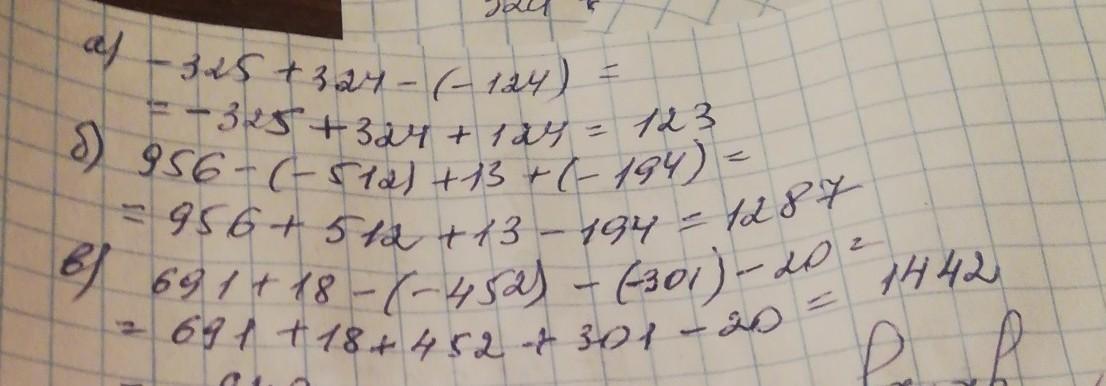 а) -325 + 324 - (-124) =
= -325 + 324 + 124 = 123
б) 956 - (-512) + 13 + (-194) =
= 956 + 512 + 13 - 194 = 1287
в) 691 + 18 - (-452) - (-301) - 20 =
= 691 + 18 + 452 + 301 - 20 = 1442